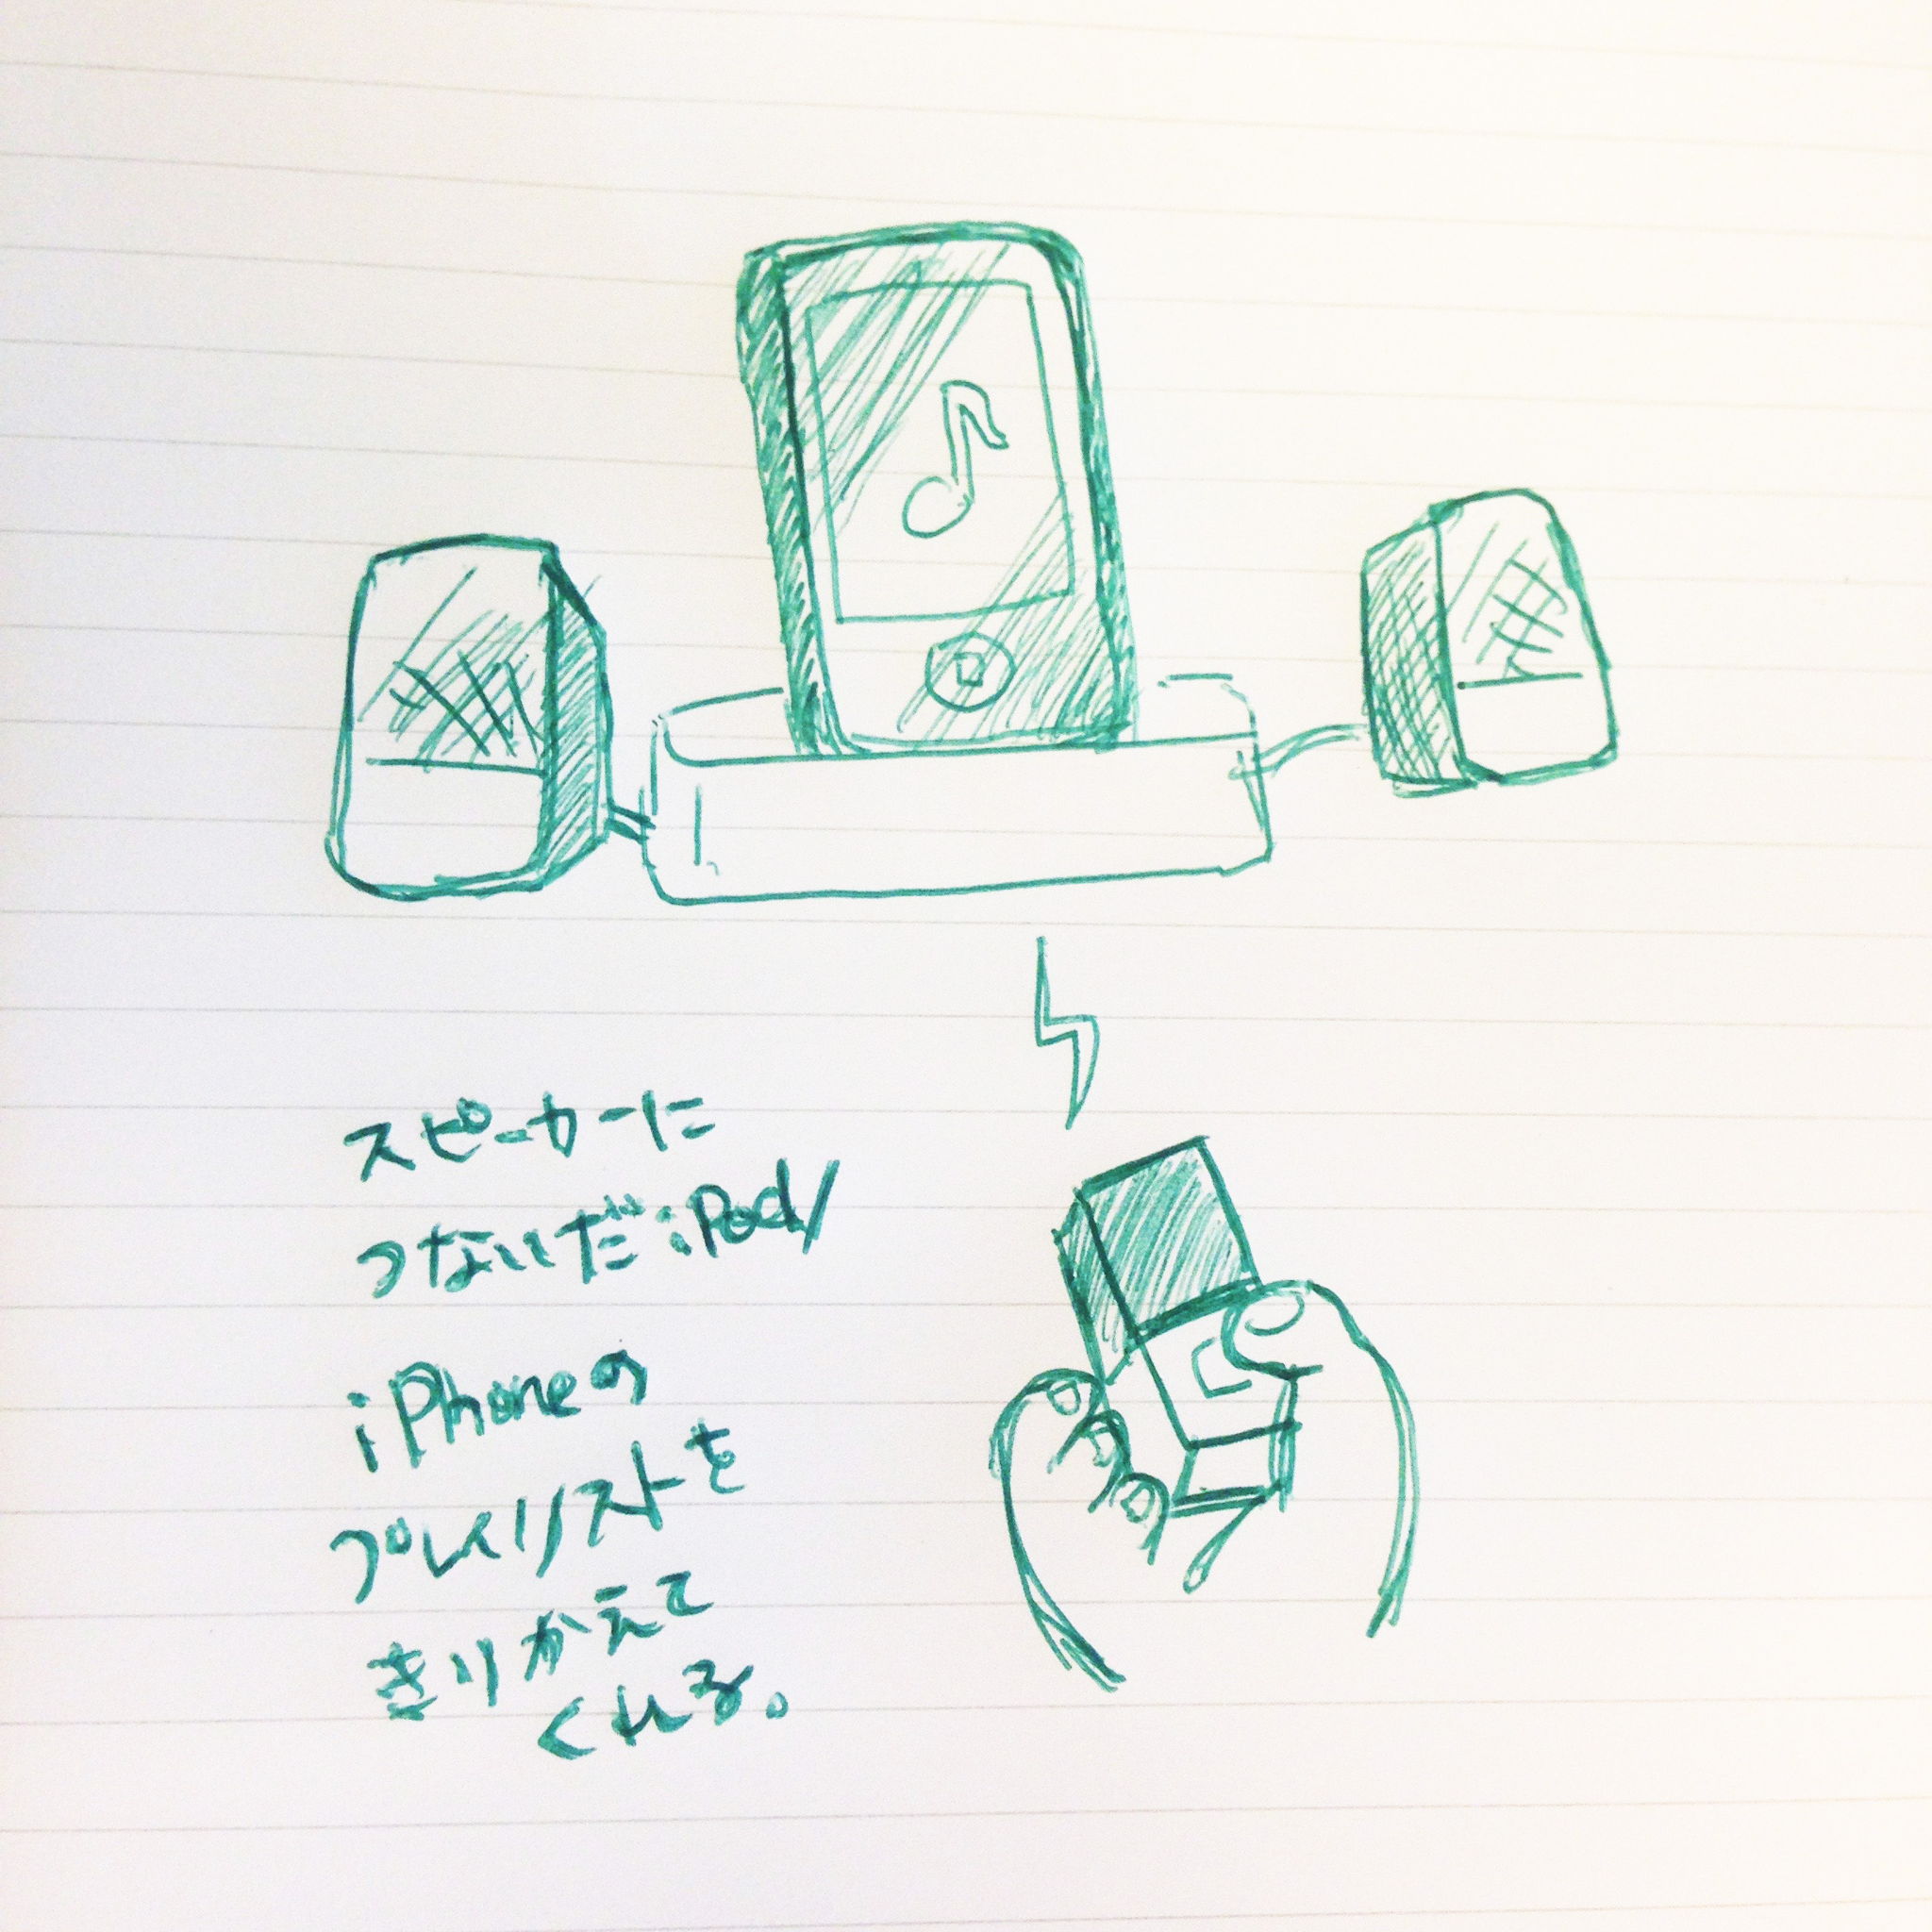 スピーカーに
つないだiPod/
iPhoneの
プレイリストを
きりかえて
くれる。